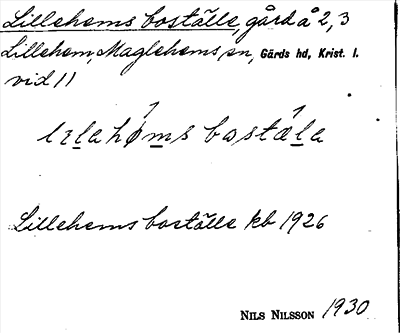 Lillehems boställe, gård å 2, 3
Lillehem, Maglehems sn, Gärds hd, Krist. l.
vid 11
Lillehems boställe kb 1926
NILS NILSSON 1930